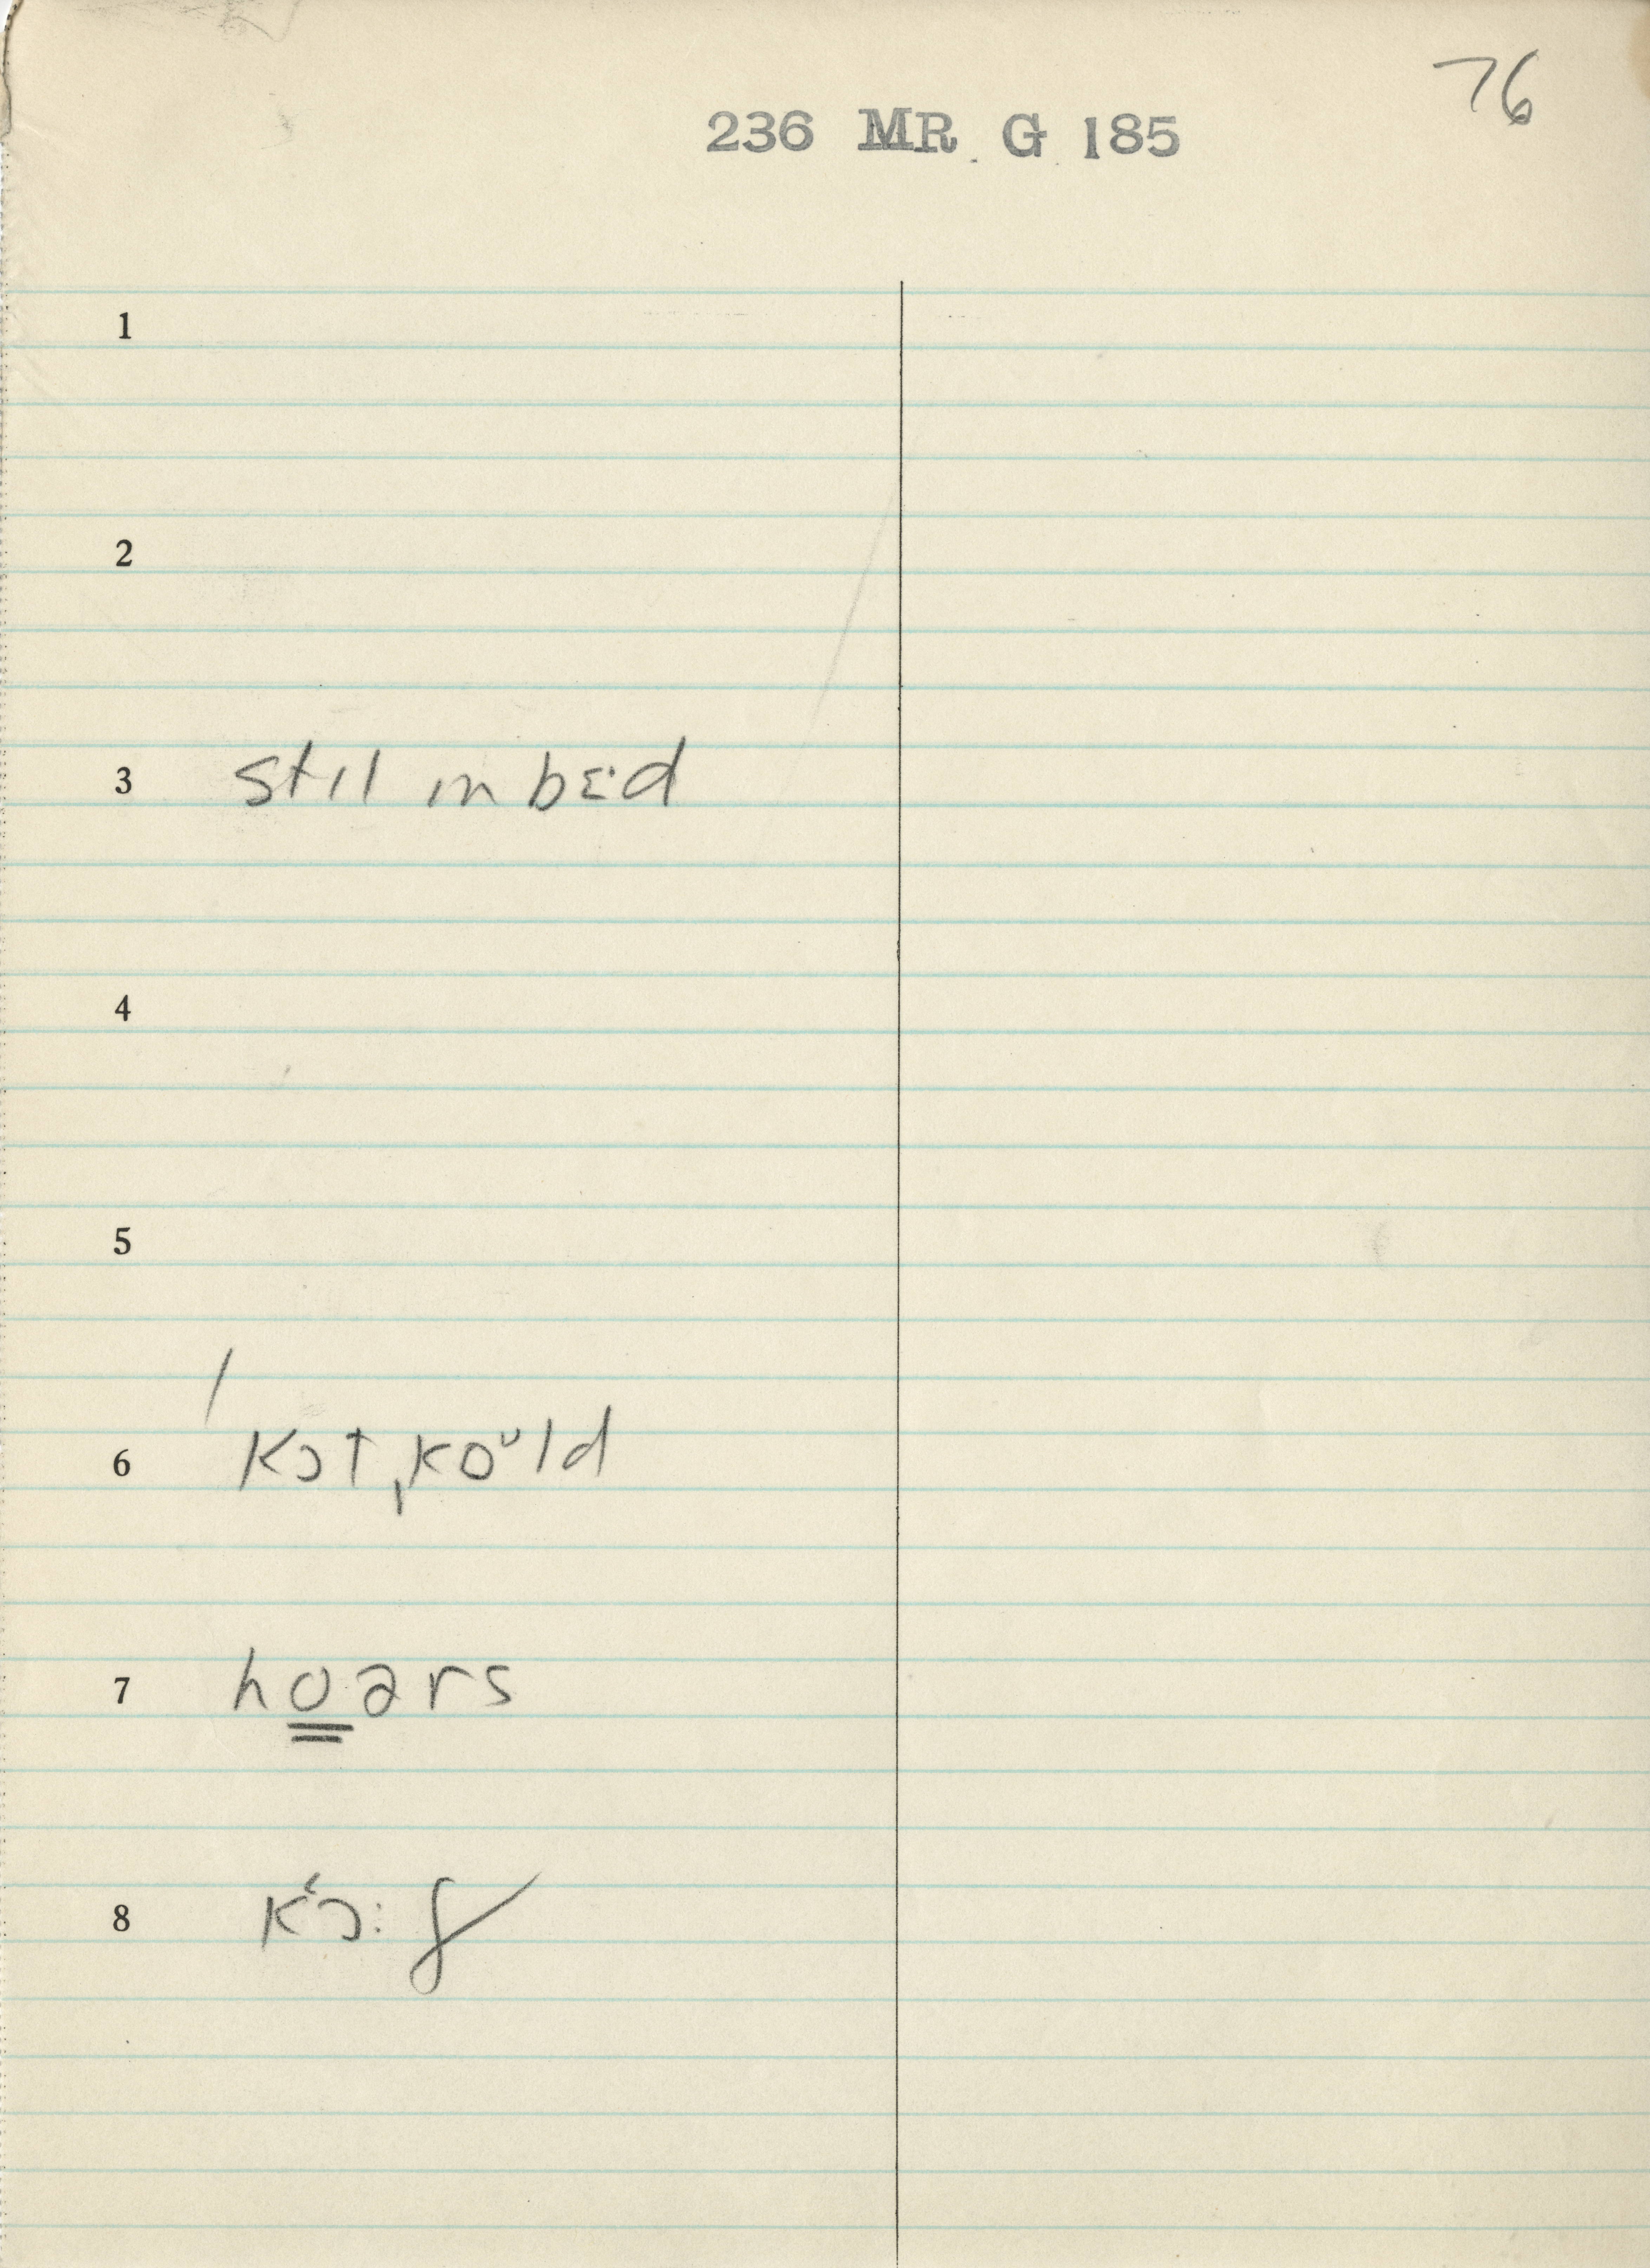 76
236 MR G 185
1
2
3 stɪl ɪn bɛ·d
4
5
/
6 kɔt ˌkoᵘld
7 ho̳ərs
8 kʻɔ:f